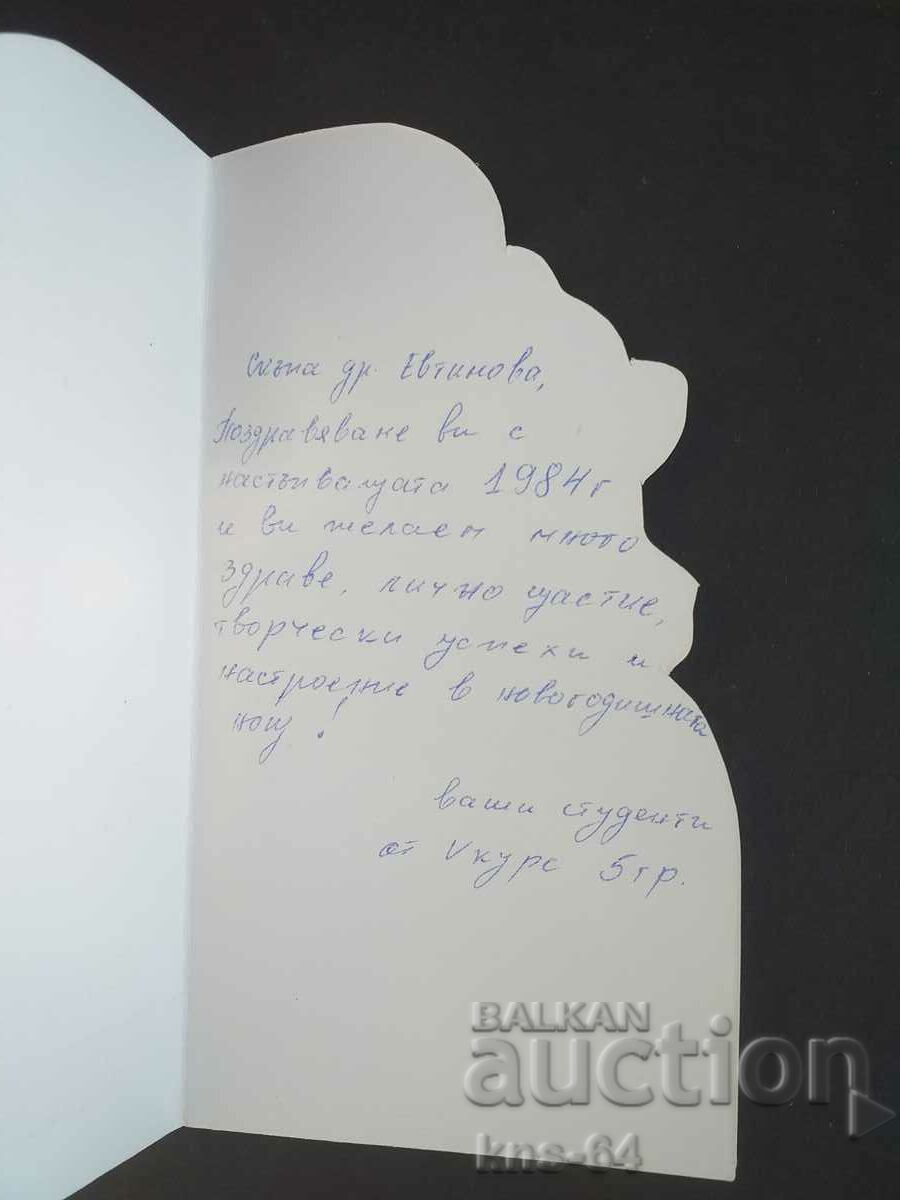 Скъпа др. Евтинова,
Поздравяваме ви с
настъпващата 1984 г
и ви желаем много
здраве, лично щастие,
творчески успехи и
настроение в новогодишната
нощ!
ваши студенти
от V курс 5 гр.
BALKAN
auction
kns-64